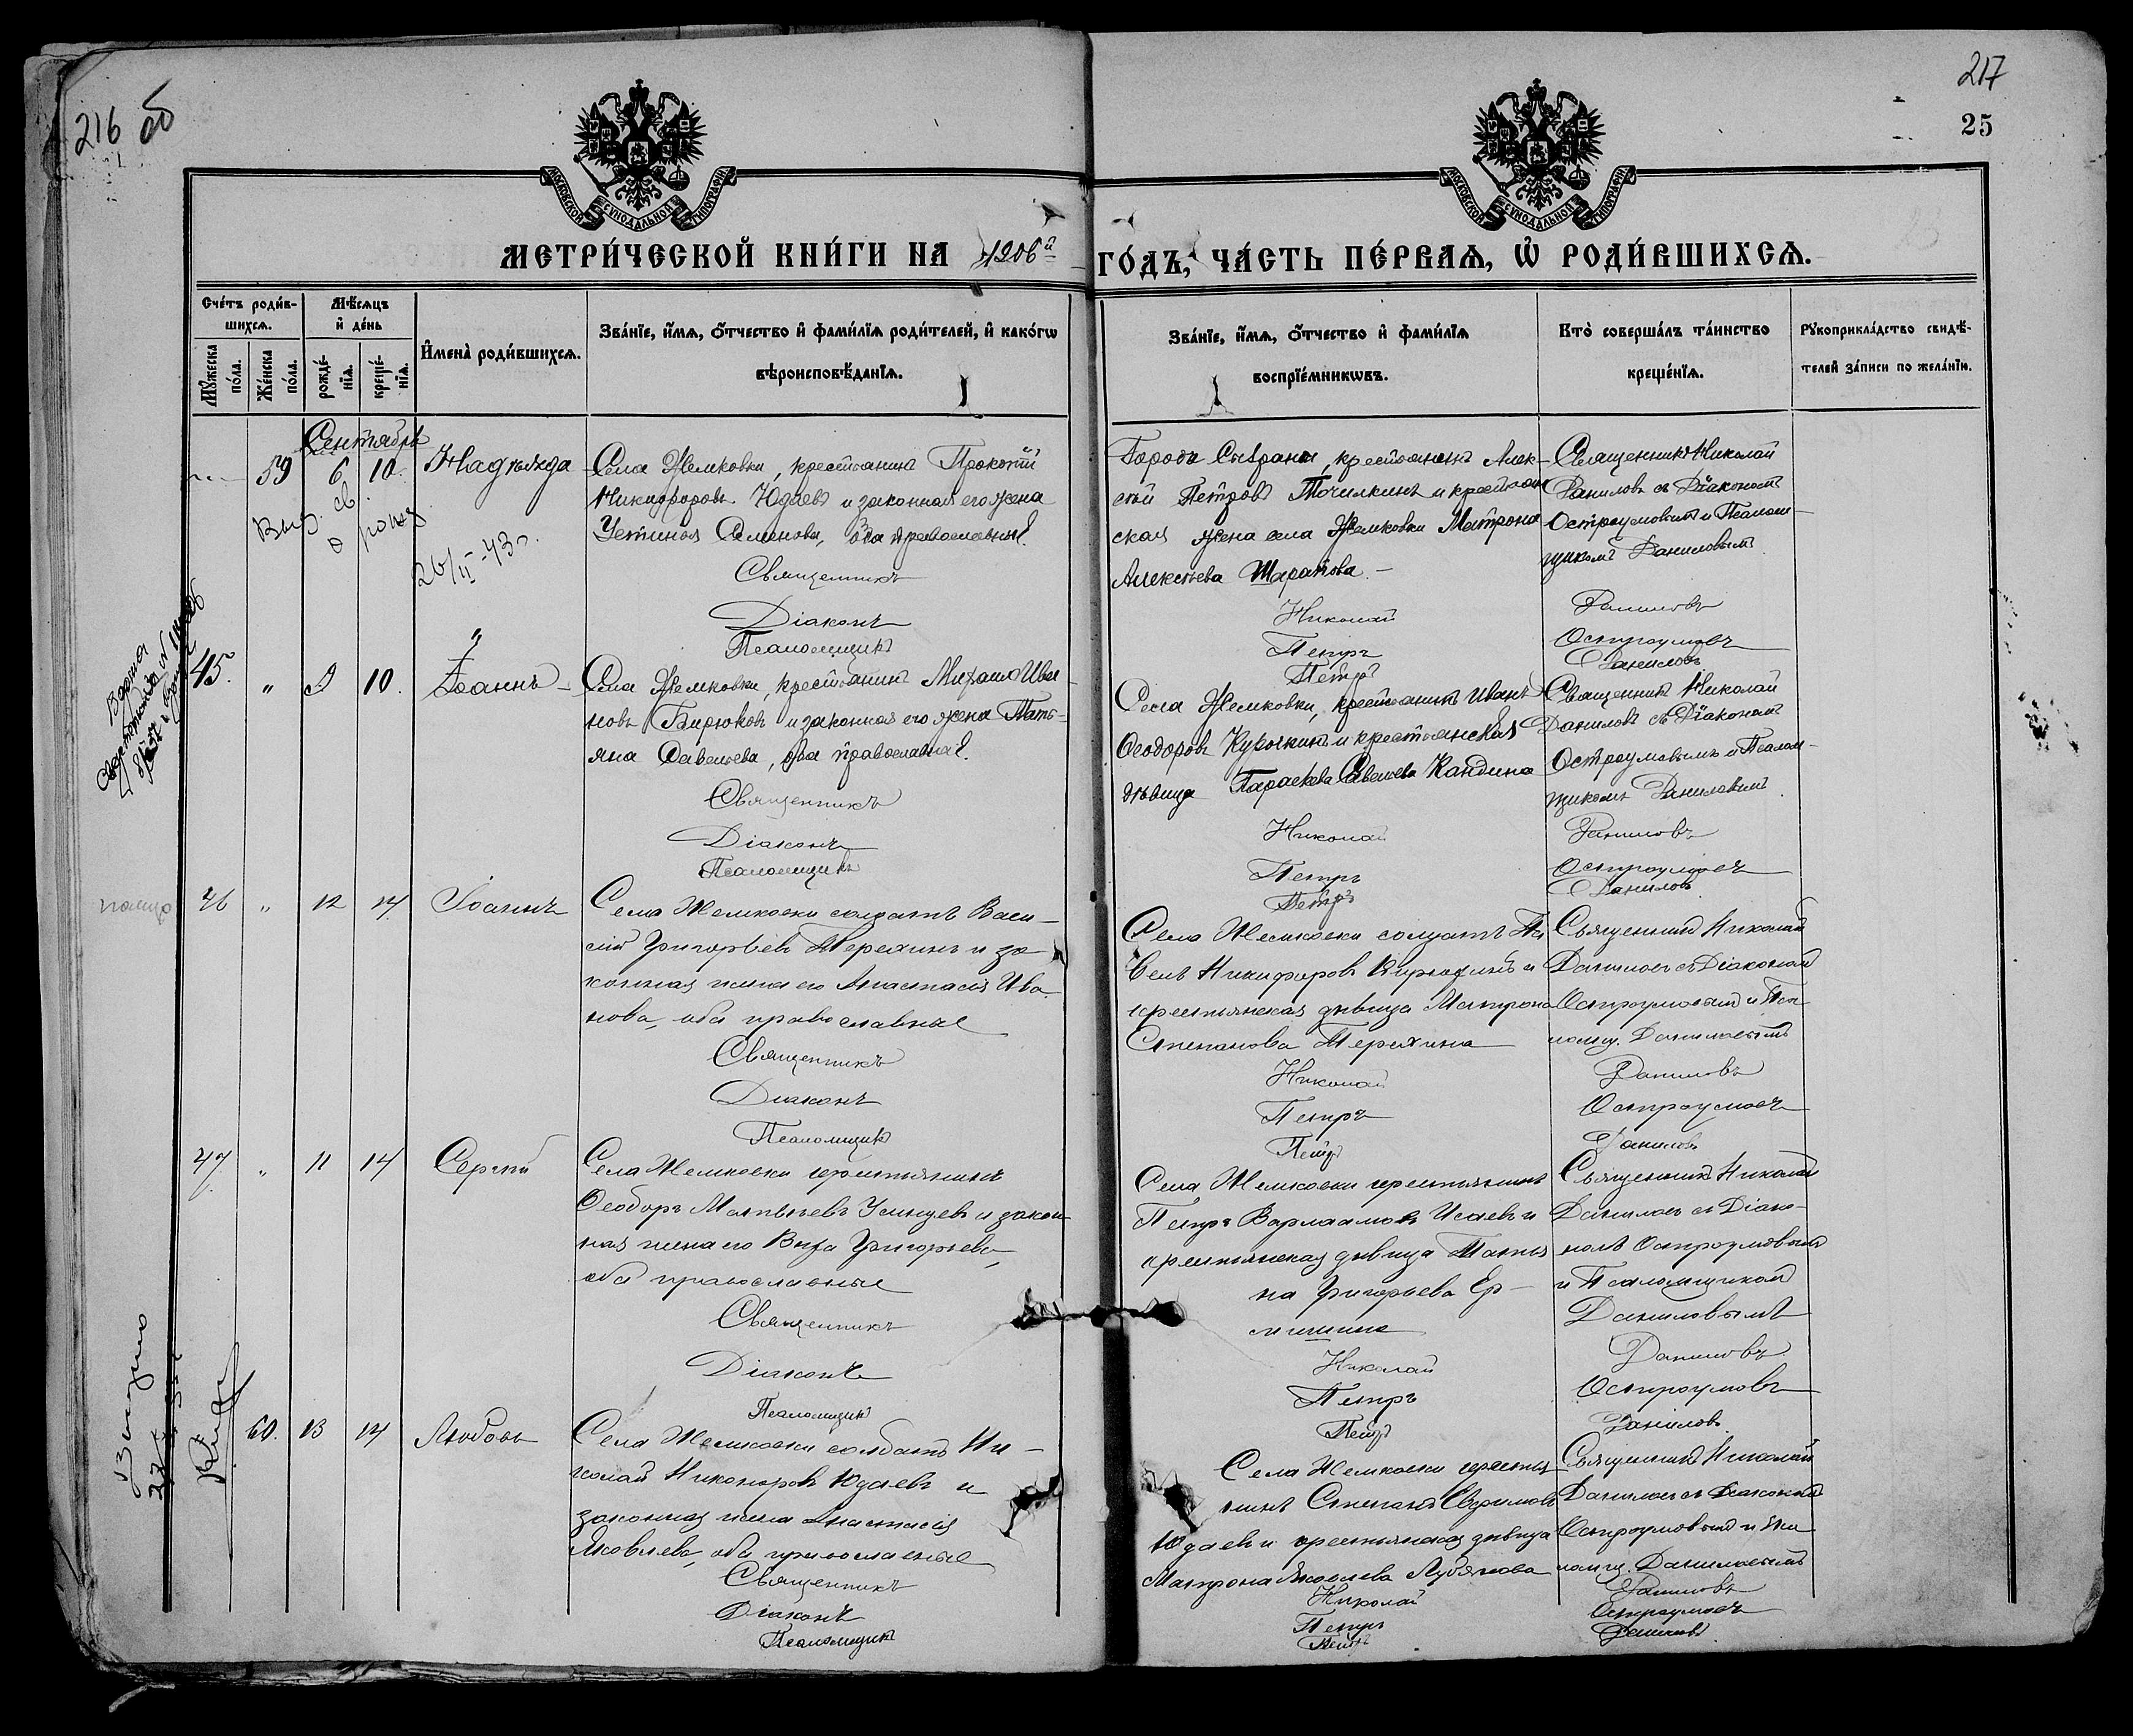 216 об
217
25
МОСКОВСКОЙ СУНОДАЛЬНОЙ ТИПОГРАФІИ
МОСКОВСКОЙ СУНОДАЛЬНОЙ ТИПОГРАФІИ
МЕТРИ́ЧЕСКОЙ КНИ́ГИ НА 1906й ГО́ДЪ, ЧА́СТЬ ПЕ́РВАѦ, Ѡ҆ РОДИ́ВШИХСѦ.
Сче́тъ роди́в-
шихсѧ.
Мѣ́сѧцъ
и҆ де́нь
Мꙋ́жеска
по́ла.
Же́нска
по́ла.
рожде́-
нїѧ.
креще́-
нїѧ.
И҆мена̀ роди́вшихсѧ.
Зва́нїе, и҆́мѧ, ѻ҆́тчество и҆ фами́лїѧ роди́телей, и҆ како́гѡ
вѣроисповѣ́данїѧ.
Зва́нїе, и҆́мѧ, ѻ҆́тчество и҆ фами́лїѧ
воспрїе́мникѡвъ.
Кто̀ соверша́лъ та́инство
креще́нїѧ.
Рꙋкоприкла́дство свидѣ́-
телей за́писи по жела́нїю.
Сентябрь
59 6 10. Надежда
Вид. св.
о рожд
26/II-43 г.
Села Жемковки, крестьянинъ Прокопій
Никифоровъ Юдаевъ и законная его жена
Устинія Семенова, оба православные.
Священникъ
Діаконъ
Псаломщикъ
Городъ Сызрани, крестьянинъ Алек-
сѣй Петровъ Точилкинъ и крестьян
ская жена села Жемковки Матрона
Алексѣева Шарапова.
Николай
Петръ
Петръ
Священникъ Николай
Даниловъ съ Діакономъ
Остроумовымъ и Псалом-
щикомъ Даниловымъ
Даниловъ
Остроумовъ
Даниловъ
45. " 9 10. Іоаннъ
Села Жемковки, крестьянинъ Михаилъ Ива-
новъ Бирюковъ и законная его жена Тать-
яна Савельева, оба православные.
Священникъ
Діаконъ
Псаломщикъ
Села Жемковки, крестьянинъ Иванъ
Ѳеодоровъ Курочкинъ и крестьянская
дѣвица Параскева Савельева Кандина
Николай
Петръ
Петръ
Священникъ Николай
Даниловъ съ Діакономъ
Остроумовымъ и Псалом-
щикомъ Даниловымъ
Даниловъ
Остроумовъ
Даниловъ
46 " 12 14 Іоаннъ
Села Жемковки солдатъ Васи-
лій Григорьевъ Терехинъ и за-
конная жена его Анастасія Ива-
нова, оба православные
Священникъ
Діаконъ
Псаломщикъ
Села Жемковки солдатъ Па
велъ Никифоровъ и
крестьянская дѣвица Матрона
Степанова Терехина
Николай
Петръ
Петръ
Священникъ Николай
Даниловъ съ Діакономъ
Остроумовымъ и Пса-
ломщ. Даниловымъ
Даниловъ
Остроумовъ
Даниловъ
47. " 11 14 Сергій
Села Жемковки крестьянинъ
Ѳеодоръ Матвѣевъ и закон-
ная жена его Вѣра Григорьева,
оба православные
Священникъ
Діаконъ
Псаломщикъ
Села Жемковки крестьянинъ
Петръ Варлаамовъ Исаевъ и
крестьянская дѣвица Татья
на Григорьева Ер-
мишина
Николай
Петръ
Петръ
Священникъ Николай
Даниловъ съ Діако-
номъ Остроумовымъ
и Псаломщикомъ
Даниловымъ
Даниловъ
Остроумовъ
Даниловъ
60. 13 14 Любовь
Села Жемковки солдатъ Ни-
колай Никоноровъ Юдаевъ и
законная жена Анастасія
Яковлева, оба православные
Священникъ
Діаконъ
Псаломщикъ
Села Жемковки крестья-
нинъ Степанъ
Юдаевъ и крестьянская дѣвица
Матрона Яковлева
Николай
Петръ
Петръ
Священникъ Николай
Даниловъ съ Діакономъ
Остроумовымъ и Пса
ломщ. Даниловымъ
Даниловъ
Остроумовъ
Даниловъ